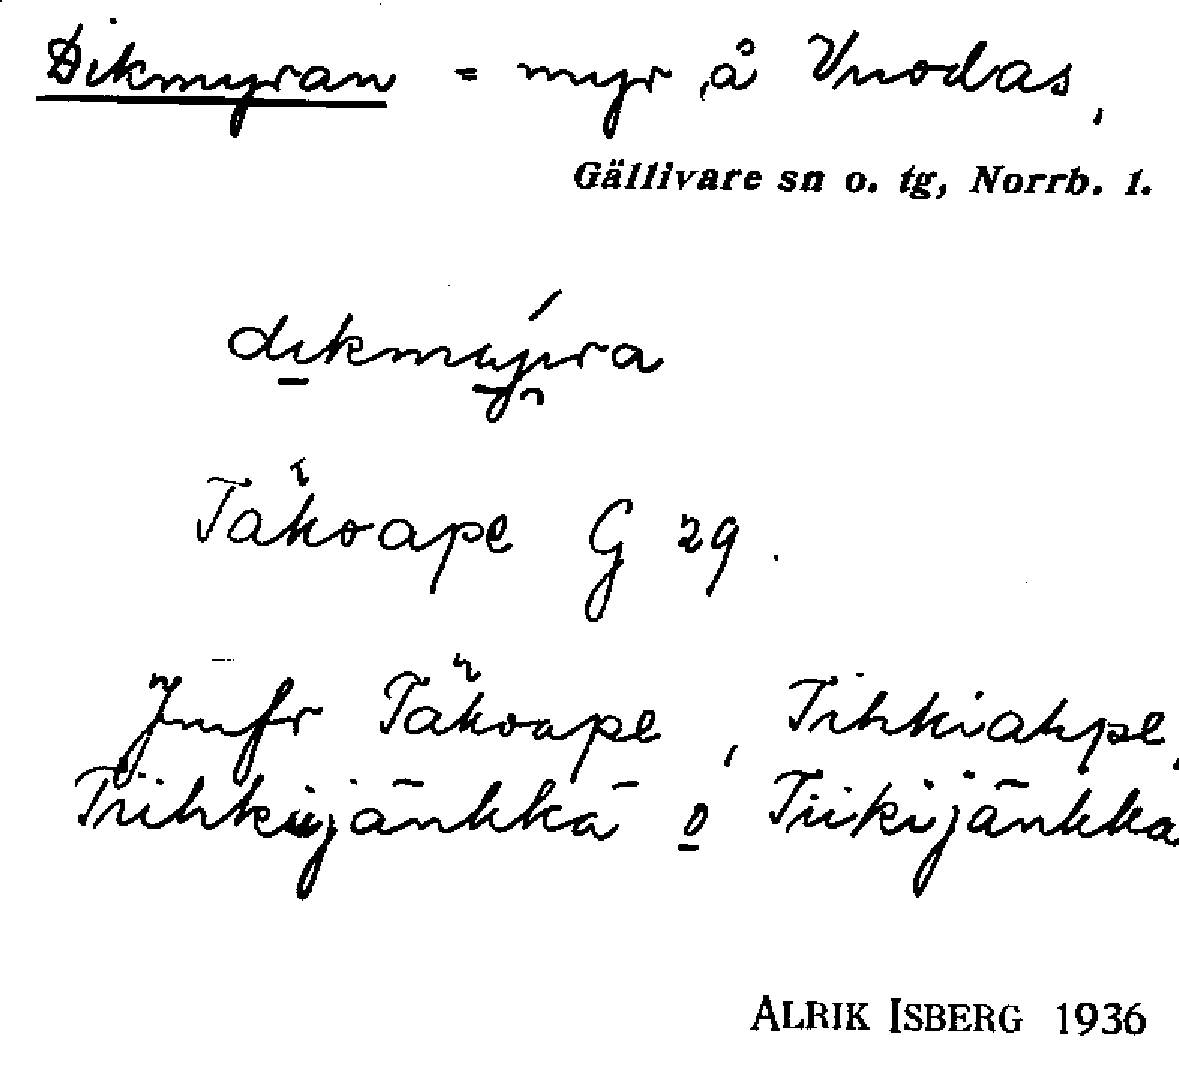 Dikmyran = myr å Vuodas,
Gällivare sn o. tg, Norrb. l.
dikmýra
Täkoape G 29.
Jmfr Täkoape, Tihkiahpe,
Tiihkijänkkä o Tiikijänkka
ALRIK ISBERG 1936